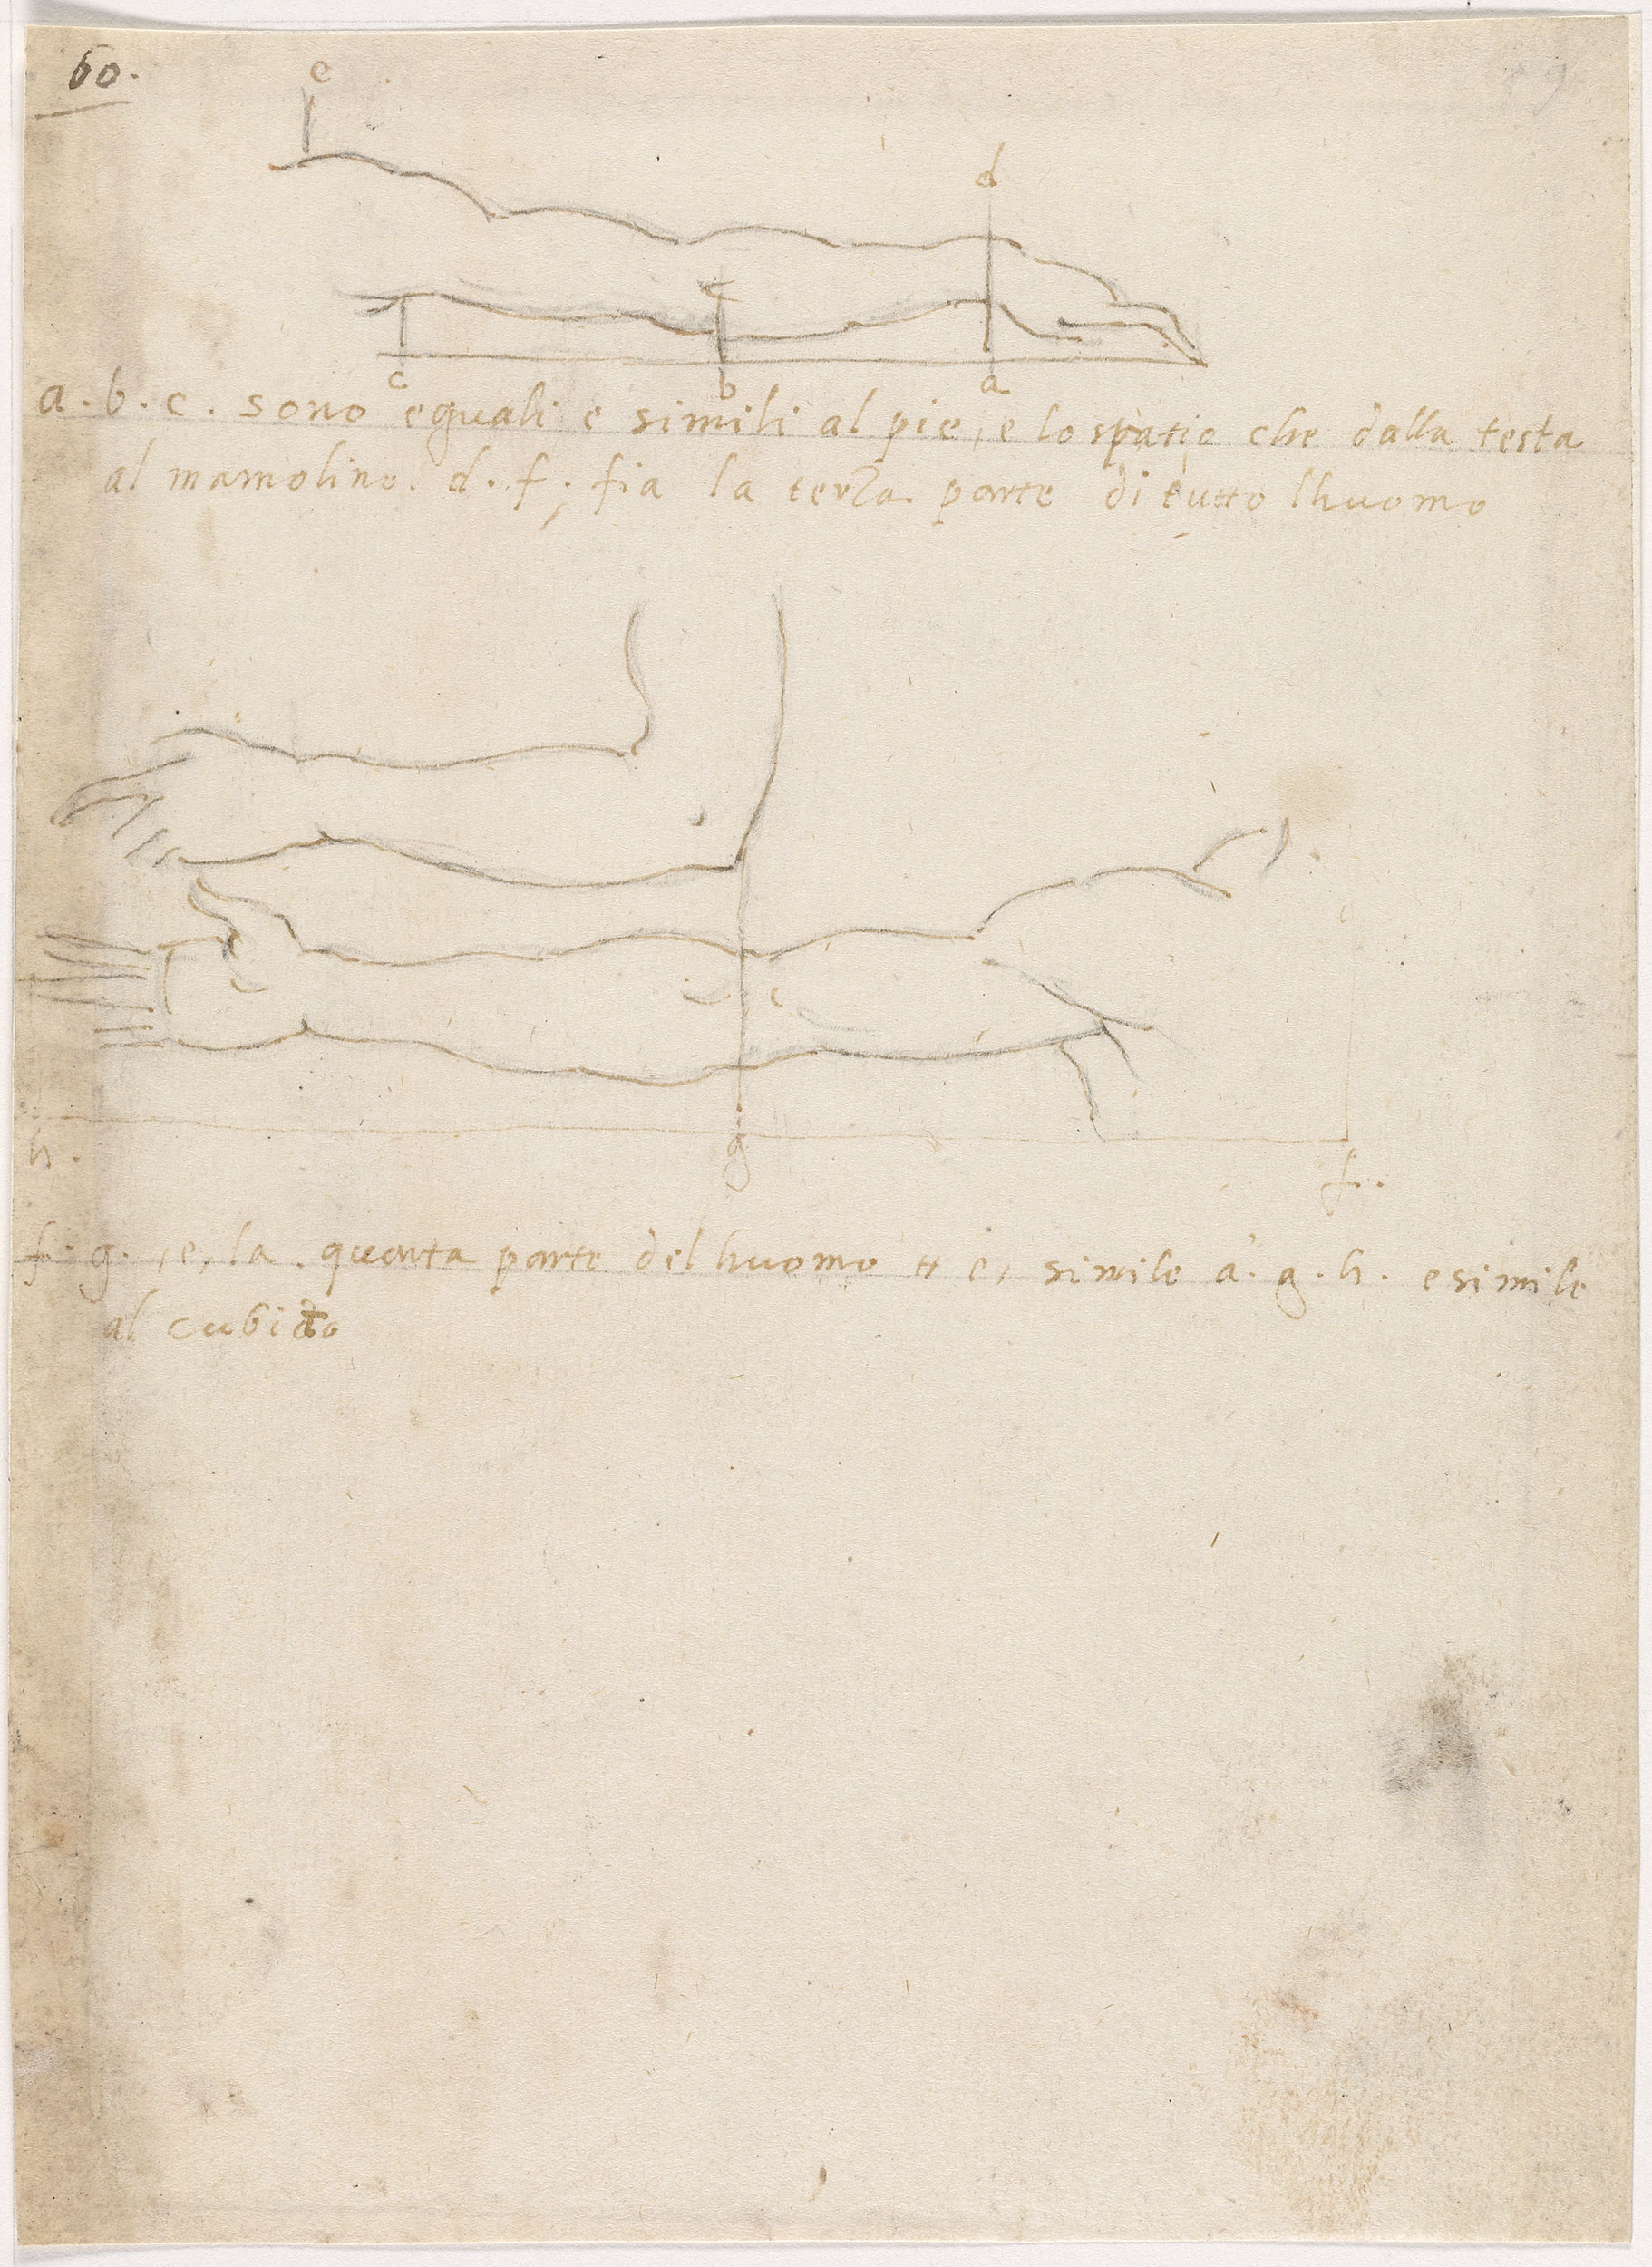 60.
e
d
c
c b a
a. b. c. sono eguali e simili al pie, e lo spatio che dalla testa
al mamolino. d. f. fia la terza. parte di tutto lhuomo
h. g f.
f. g. , e, la. quarta parte del huomo et e, simile à. g. h. e simile
al cubito